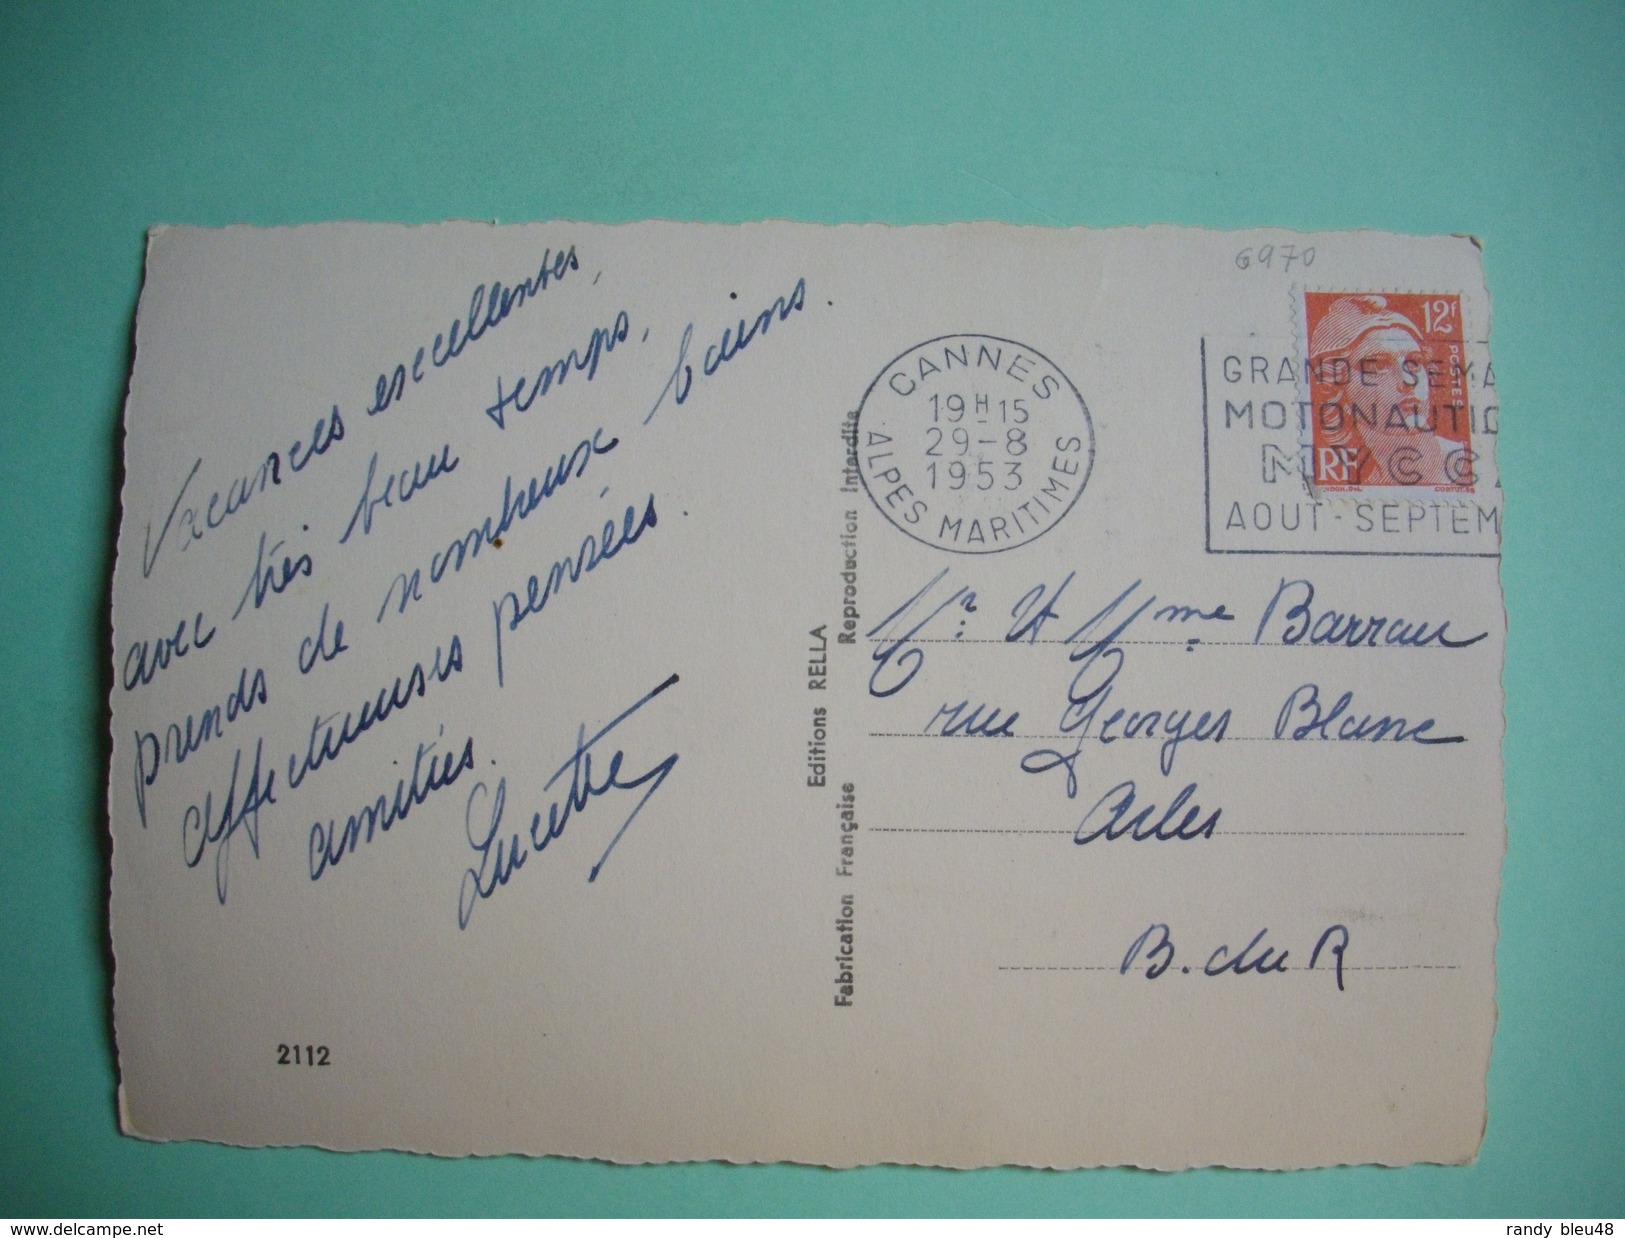 Vacances excellentes,
avec très beau temps,
prends de nombreux bains.
affectueuses pensées.
amitiés.
Lucette
2112
Fabrication Française
Editions RELLA
Reproduction Interdite
6970
CANNES
19H15
29-8
1953
ALPES MARITIMES
GRANDE SEMA
MOTONAUTIQ
MYCCA
AOUT-SEPTEM
12f
POSTES
RF
Mr. et Mme Barrau
rue Georges Blanc
Arles
B. du R
www.delcampe.net
randy bleu48